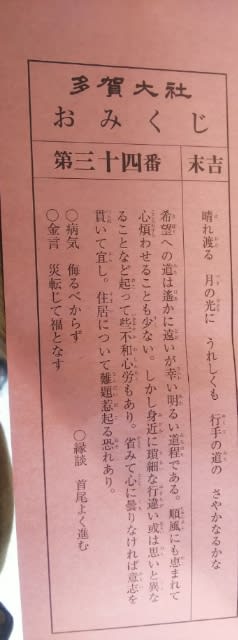 多賀大社
おみくじ
第三十四番
末吉
晴れ渡る　月の光に　うれしくも　行手の道の　さやかなるかな
希望への道は遙かに遠いが幸い明るい道程である。順風にも恵まれて
心煩わせることも少ない。しかし身近に瑣細な行違い或は思いと異な
ることなど起って些か不和心労もあり。省みて心に曇りなければ意志を
貫いて宜し。住居について難題惹起る恐れあり。
〇病気　侮るべからず
〇縁談　首尾よく進む
〇金言　災転じて福となす